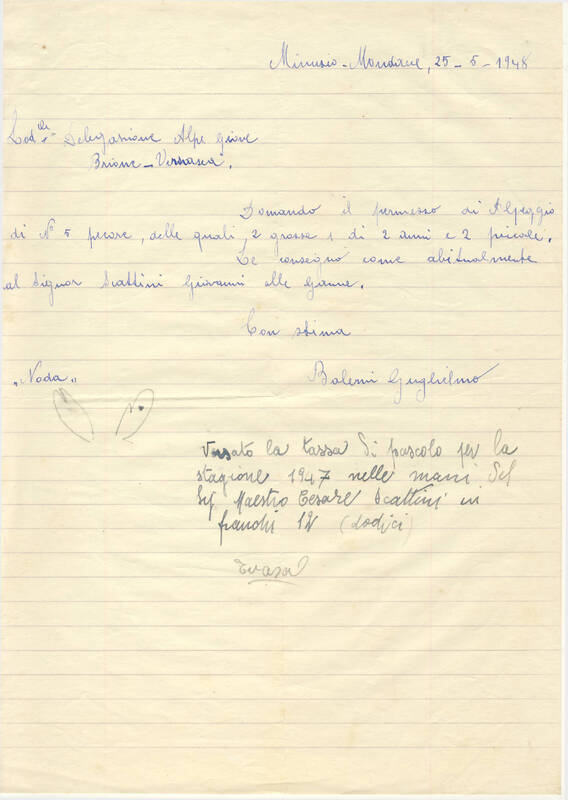 Minusio-Mondacce, 25-5-1948
Lod.le Delegazione Alpe Giove
Brione-Verzasca.
Domando il permesso di Alpeggio
di N° 5 pecore, delle quali, 2 grosse 1 di 2 anni e 2 piccole.
Le consegno come abitualmente
al Signor Scattini Giovanni alle Ganne.
Con stima
"Noda" Balemi Guglielmo
Versato la tassa di pascolo per la
stagione 1947 nelle mani del
Sig. Maestro Cesare Scattini in
franchi 12 (dodici)
Evasa